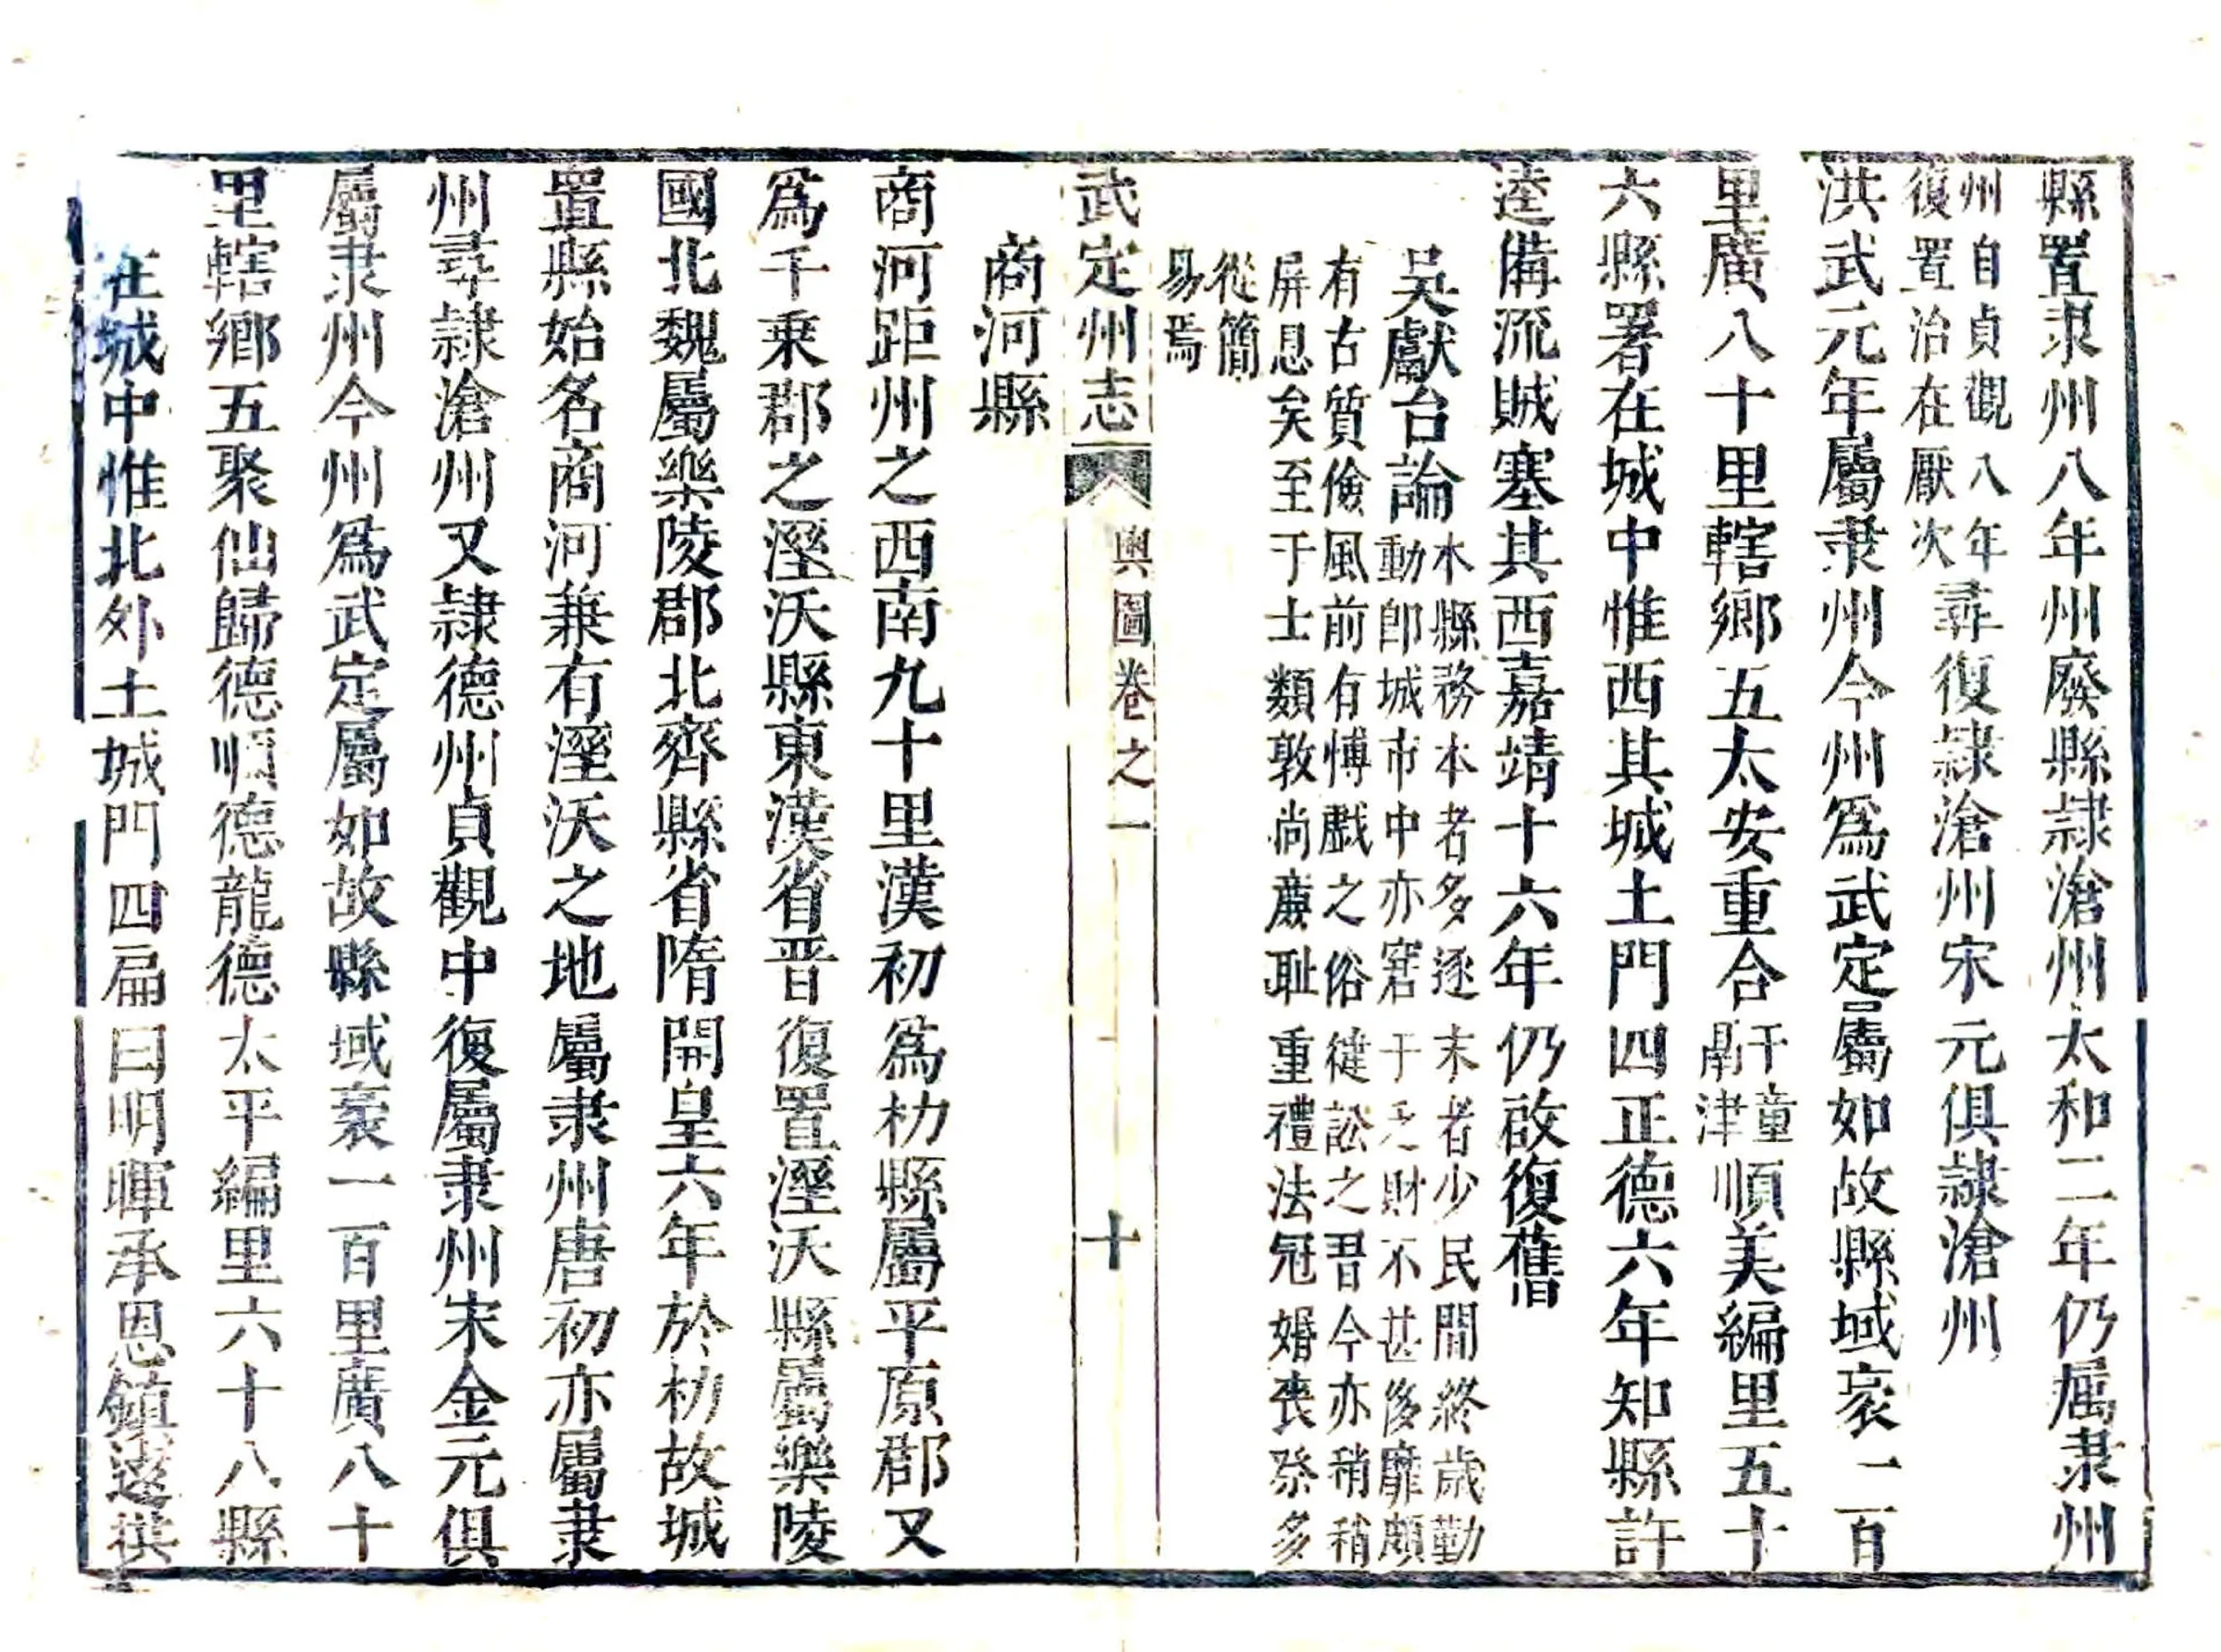 縣置隶州八年州廢縣隷滄州太和二年仍屬隶州
州自貞觀八年
復置治在厭次
尋復隷滄州宋元俱隷滄州
洪武元年屬隶州今州爲武定屬如故縣域袤一百
里廣八十里轄鄉五太安重合
干童
鬲津
順美編里五十
六縣署在城中惟西其城土門四正德六年知縣許
逵備流賊塞其西嘉靖十六年仍啟復舊
吳獻台論
本縣務本者多逐末者少民間終歲勤
動卽城市中亦窘于乏財不甚侈靡頗
有古質儉風前有博戲之俗健訟之習今亦稍稍
屏息矣至于士類敦尚廉耻重禮法冠婚喪祭多
從簡
易焉
武定州志
輿圖卷之一
十
商河縣
商河距州之西南九十里漢初爲朸縣屬平原郡又
爲千乗郡之溼沃縣東漢省晋復置溼沃縣屬樂陵
國北魏屬樂陵郡北齊縣省隋開皇六年於朸故城
置縣始名商河兼有溼沃之地屬隶州唐初亦屬隶
州尋隷滄州又隷德州貞觀中復屬隶州宋金元俱
屬隶州今州爲武定屬如故縣域袤一百里廣八十
里轄鄉五聚仙歸德順德龍德太平編里六十八縣
在城中惟北外土城門四扁曰明暉承恩鎮遠拱